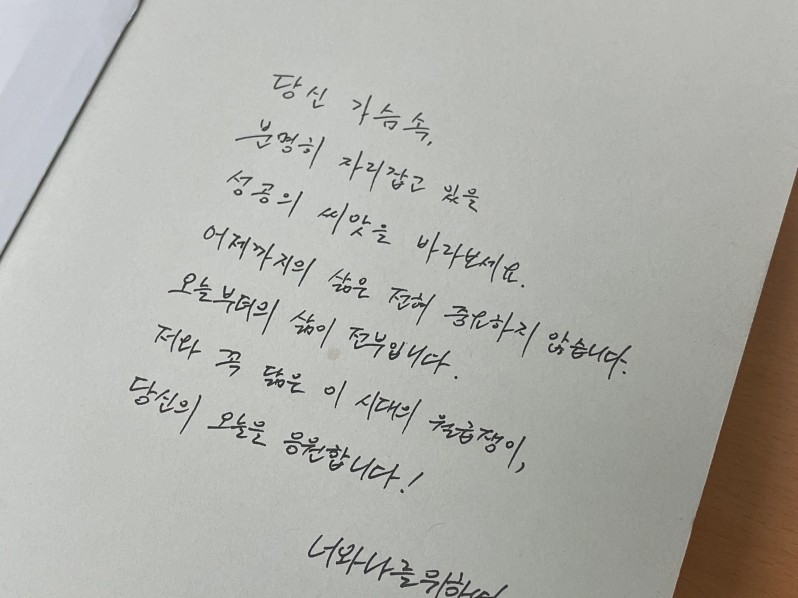 당신 가슴 속,
분명히 자리잡고 있을
성공의 씨앗을 바라보세요.
어제까지의 삶은 전혀 중요하지 않습니다.
오늘부터의 삶이 전부입니다.
저와 꼭 닮은 이 시대의 월급쟁이,
당신의 오늘을 응원합니다!
너와나를위하여